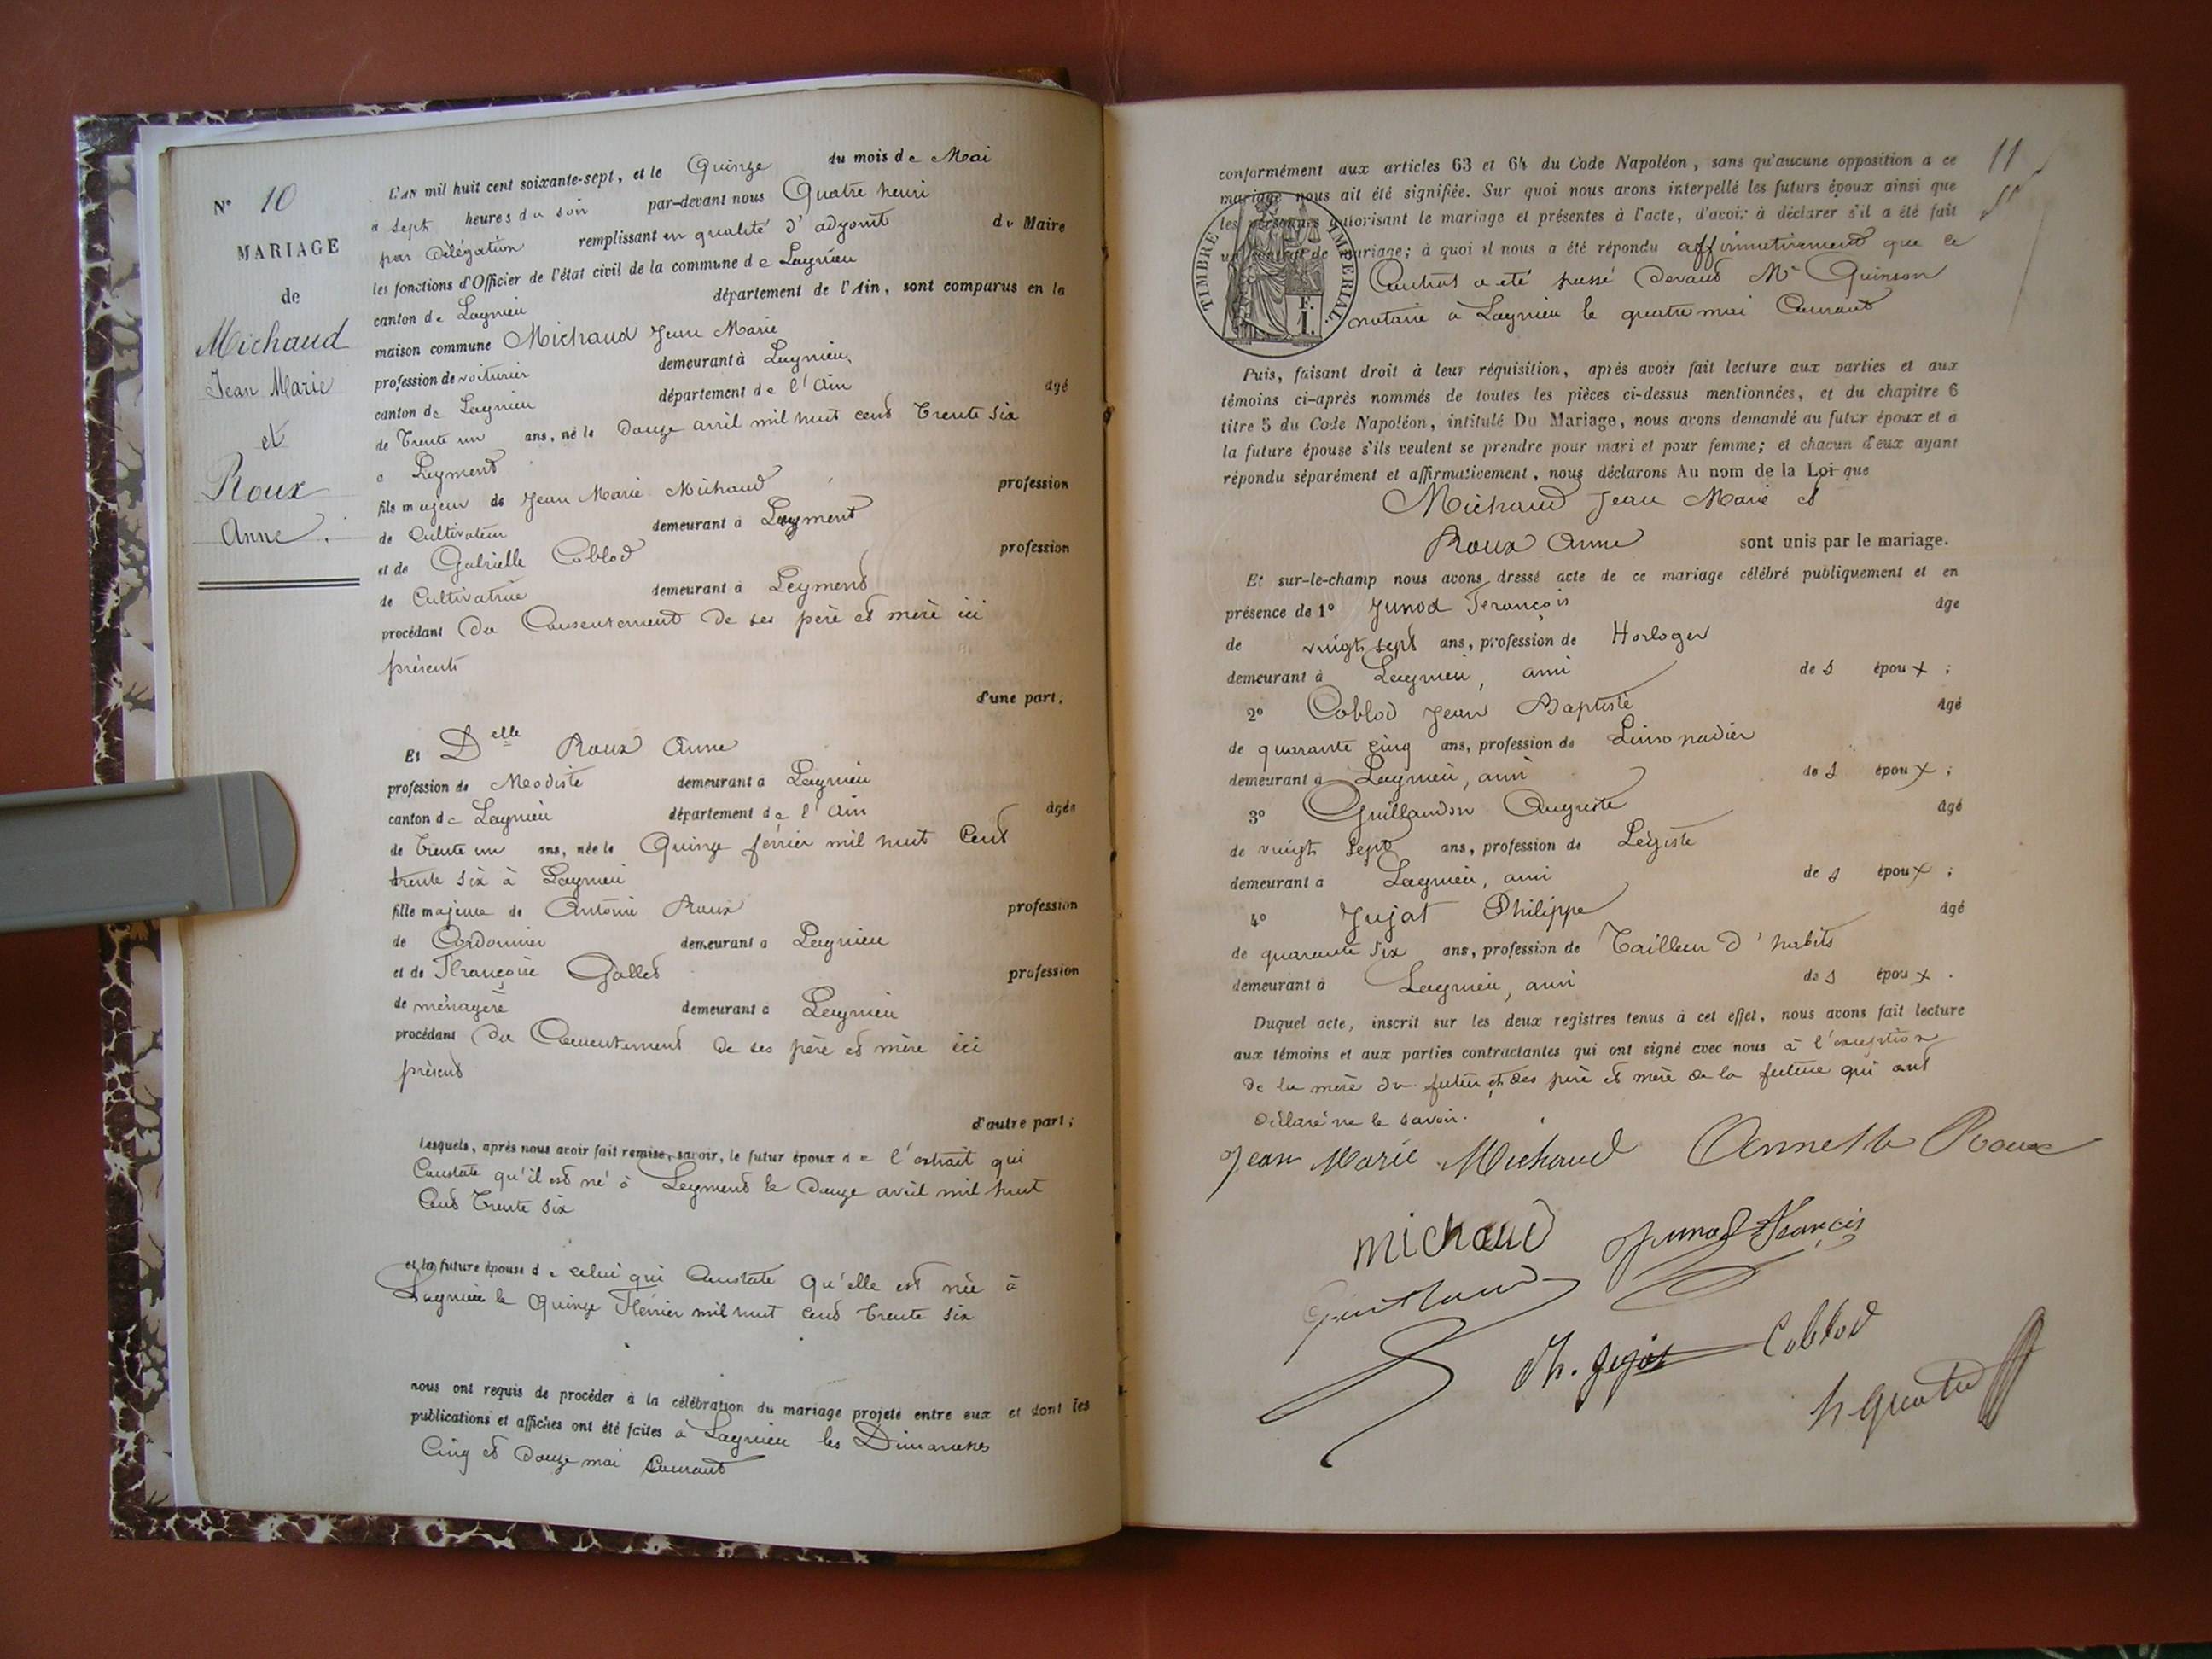 N° 10
MARIAGE
de
Michaud
Jean Marie
et
Roux
Anne.
L'AN mil huit cent soixante-sept, et le Quinze du mois de Mai
à sept heures du soir par-devant nous Quatre henri
par délégation remplissant en qualité d'adjoint du Maire
les fonctions d'Officier de l'état civil de la commune de Lagnieu
canton de Lagnieu département de l'Ain, sont comparus en la
maison commune Michaud Jean Marie
profession de voiturier demeurant à Lagnieu,
canton de Lagnieu département de l'Ain âgé
de Trente un ans, né le Douze avril mil huit cent Trente six
à Leyment
fils majeur de Jean Marie Michaud profession
de Cultivateur demeurant à Leyment
et de Gabrielle Coblod profession
de Cultivatrice demeurant à Leyment
procédant du Consentement de ses père et mère ici
présents
d'une part;
Et Delle Roux Anne
profession de Modiste demeurant à Lagnieu
canton de Lagnieu département de l'Ain âgée
de Trente un ans, née le Quinze février mil huit Cent
trente six à Lagnieu
fille majeure de Antoine Roux profession
de Cordonnier demeurant à Lagnieu
et de Françoise Gallet profession
de ménagère demeurant à Lagnieu
procédant du Consentement de ses père et mère ici
présent
d'autre part;
Lesquels, après nous avoir fait remise, savoir, le futur époux de l'extrait qui
Constate qu'il est né à Leyment le Douze avril mil huit
Cent Trente six
et la future épouse de celui qui Constate qu'elle est née à
Lagnieu le Quinze Février mil huit cent trente six
nous ont requis de procéder à la célébration du mariage projeté entre eux et dont les
publications et affiches ont été faites à Lagnieu les Dimanches
Cinq et Douze mai Courant
11
conformément aux articles 63 et 64 du Code Napoléon, sans qu'aucune opposition à ce
mariage nous ait été signifiée. Sur quoi nous avons interpellé les futurs époux ainsi que
les personnes autorisant le mariage et présentes à l'acte, d'avoir à déclarer s'il a été fait
un contrat de mariage; à quoi il nous a été répondu affirmativement que le
Contrat a été passé Devant Me Quinson
notaire à Lagnieu le quatre mai Courant
TIMBRE IMPERIAL.
F.
1.
Puis, faisant droit à leur réquisition, après avoir fait lecture aux parties et aux
témoins ci-après nommés de toutes les pièces ci-dessus mentionnées, et du chapitre 6
titre 5 du Code Napoléon, intitulé Du Mariage, nous avons demandé au futur époux et à
la future épouse s'ils veulent se prendre pour mari et pour femme; et chacun d'eux ayant
répondu séparément et affirmativement, nous déclarons Au nom de la Loi que
Michaud Jean Marie et
Roux Anne sont unis par le mariage.
Et sur-le-champ nous avons dressé acte de ce mariage célébré publiquement et en
présence de 1° Junod François âgé
de vingt sept ans, profession de Horloger
demeurant à Lagnieu, ami des époux;
2° Coblod Jean Baptiste âgé
de quarante cinq ans, profession de Limonadier
demeurant à Lagnieu, ami des époux;
3° Guillaudon Auguste âgé
de vingt sept ans, profession de Légiste
demeurant à Lagnieu, ami des époux;
4° Jujat Philippe âgé
de quarante six ans, profession de Tailleur d'habits
demeurant à Lagnieu, ami des époux.
Duquel acte, inscrit sur les deux registres tenus à cet effet, nous avons fait lecture
aux témoins et aux parties contractantes qui ont signé avec nous à l'exception
de la mère du futur et des père et mère de la future qui ont
déclaré ne le savoir.
Jean Marie Michaud Annette Roux
michaud Junod Francis
Ph. Jujat Coblod
h Quatre